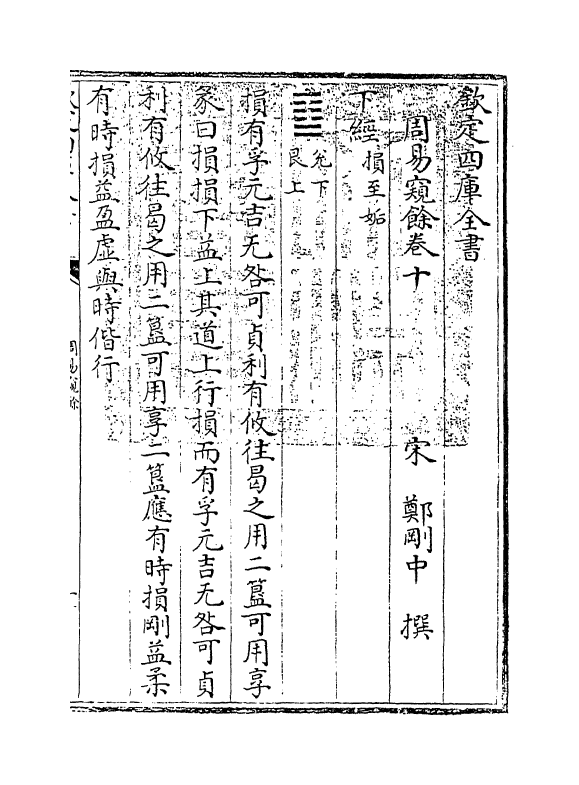 欽定四庫全書
周易窺餘卷十
宋 鄭剛中 撰
下經 損至姤
䷨ 兌下 艮上
損有孚元吉无咎可貞利有攸往曷之用二簋可用享
彖曰損損下益上其道上行損而有孚元吉无咎可貞
利有攸往曷之用二簋可用享二簋應有時損剛益柔
有時損益盈虛與時偕行
周易窺餘